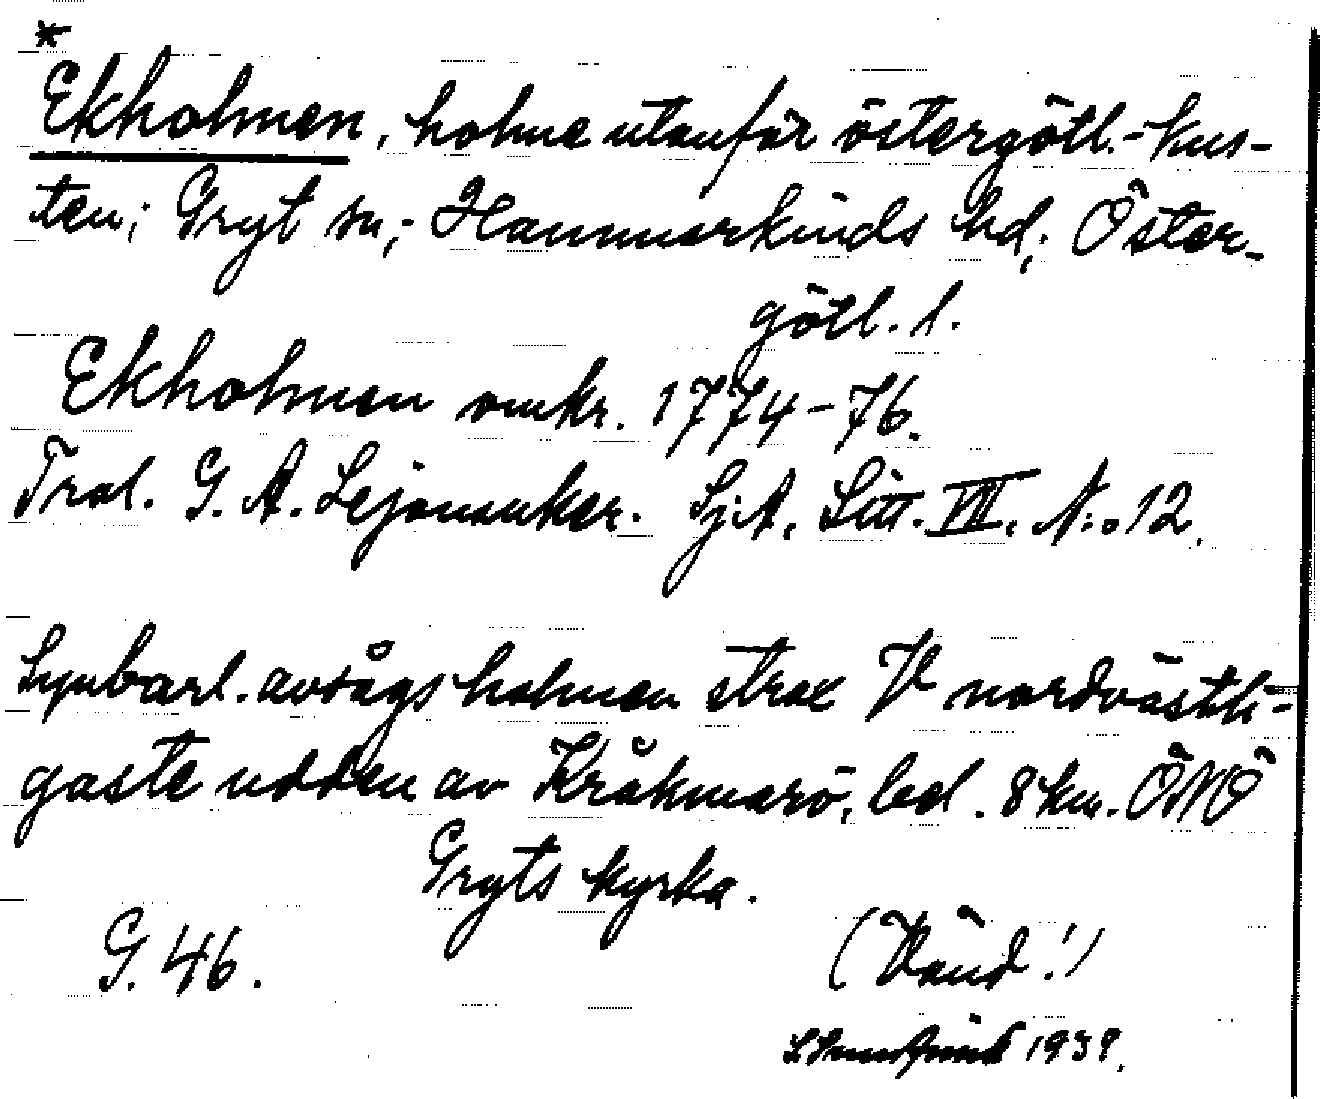 *
Ekholmen, holme utanför östergötl.-kus-
ten; Gryt sn; Hammarkinds hd; Öster-
götl. l.
Ekholmen omkr. 1774-76.
Tral. G. A. Lejonanker. Sj.A. Litt. VII. N:o 12.
Synbarl. avsågs holmen strax V nordvästli-
gaste udden av Kråkmarö, bel. 8 km. ÖNÖ
Gryts kyrka.
G. 46.
(Vänd!)
1939.